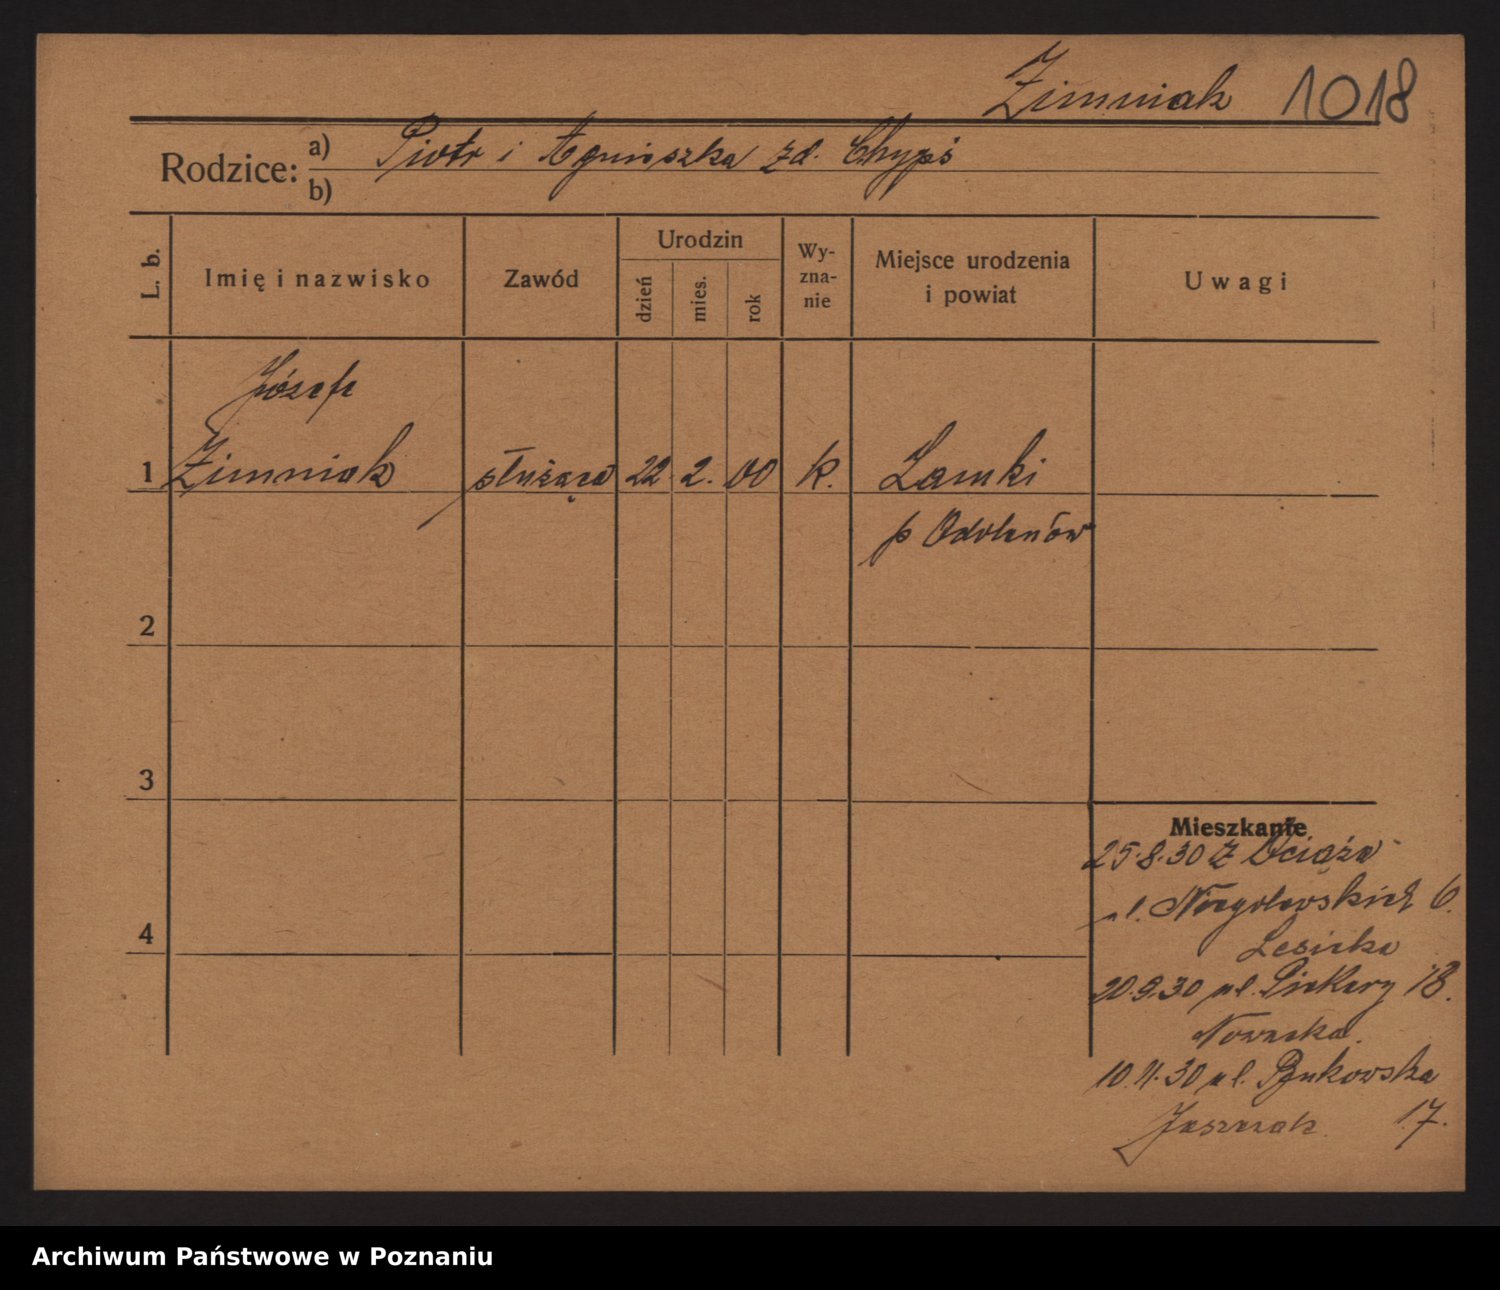 Zimniak 1018
Rodzice: a) Piotr i Agnieszka zd. Chypś
b)
L. b.
Imię i nazwisko
Zawód
Urodzin
dzień
mies.
rok
Wy-
zna-
nie
Miejsce urodzenia
i powiat
Uwagi
Józefa
1 Zimniak służąca 22. 2. 00 k. Lamki
p Odolanów
2
3
4
Mieszkanie
25.8.30 z Ociąża
ul. Niegolewskich 6.
Lesicka
20.9.30 ul. Piekary 18.
Nowacka.
10.11.30 ul. Bukowska
Jaszczak 17.
Archiwum Państwowe w Poznaniu